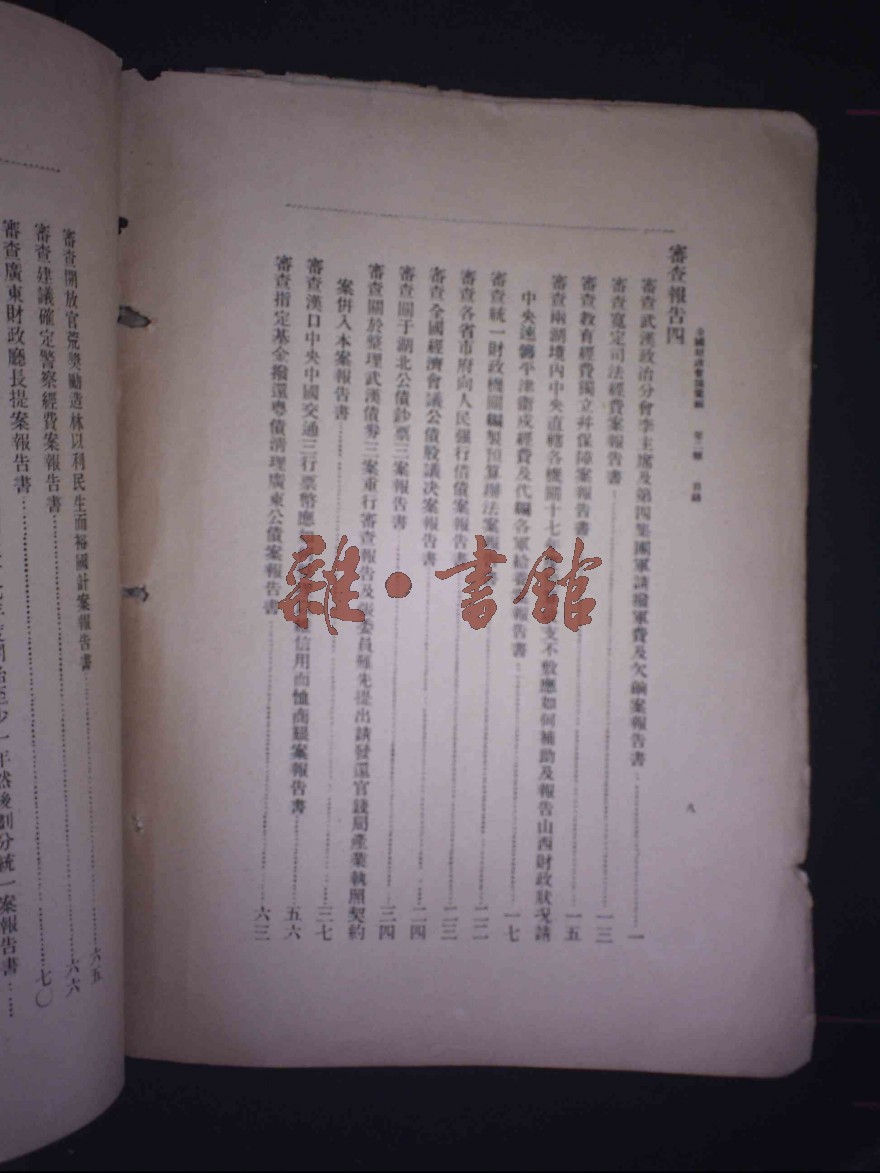 全國財政會議彙編　第二類　目錄
八
審查報告四
審查武漢政治分會李主席及第四集團軍請撥軍費及欠餉案報告書………一
審查寬定司法經費案報告書………一三
審查教育經費獨立幷保障案報告書………一五
審查兩湖境內中央直轄各機關十七支不敷應如何補助及報告山西財政狀況請
中央速籌平津衛戍經費及代編各軍給報告書………一七
審查統一財政機關編製預算辦法案………二二
審查各省市府向人民強行借債案報告書………二三
審查全國經濟會議公債股議决案報告書………二四
審查關于湖北公債鈔票三案報告書………三四
審查關於整理武漢債券三案重行審查報告及張委員難先提出請發還官錢局產業執照契約
案併入本案報告書………三七
審查漢口中央中國交通三行票幣應信用而恤商艱案報告書………五六
審查指定基金撥還粤債清理廣東公債案報告書………六三
雜·書館
審查開放官荒獎勵造林以利民生而裕國計案報告書………六五
審查建議確定警察經費案報告書………六六
審查廣東財政廳長提案報告書………七〇
開始至少一年然後劃分統一案報告書